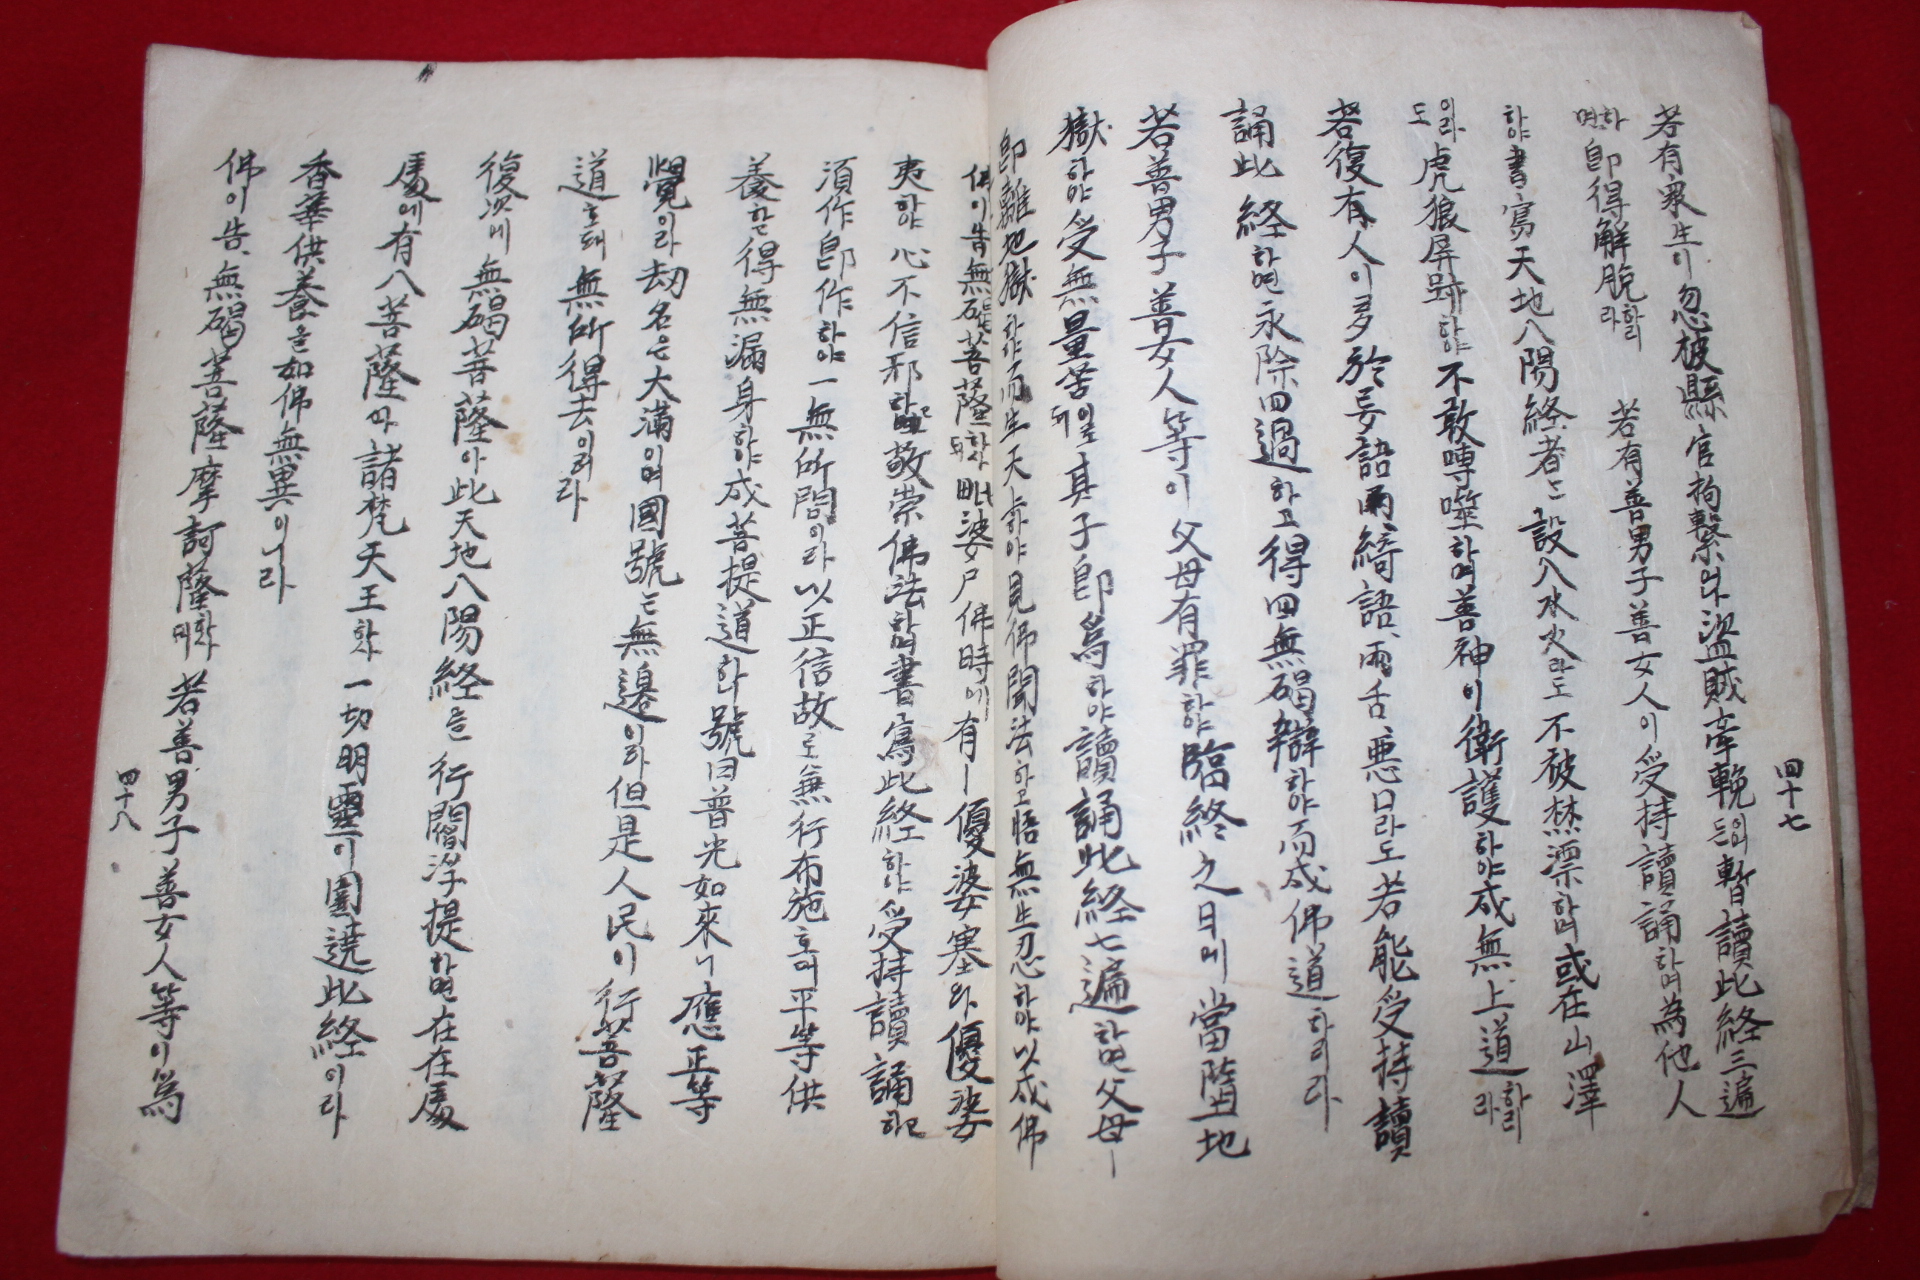 若有衆生이忽被縣官拘繋와盜賊牽輓든이어暫讀此経三遍
하면即得解脫하리라 若有善男子善女人이受持讀誦하며為他人
하야書寫天地八陽経者는設入水火라도不被焚漂하며或在山澤
이라도虎狼屏跡하야不敢嚩噬하며善神이衛護하야成無上道하리라
若復有人이多於妄語而綺語、兩舌、悪口라도若能受持讀
誦此経하면永除四過하고得四無碍辯하야而成佛道하리라
若善男子善女人等이父母有罪하야臨終之日에當墮地
獄하야受無量苦이로되其子即爲하야讀誦此経七遍하면父母ㅣ
即離地獄하야而生天上하야見佛聞法하고悟無生忍하야以成佛
四十七
佛이告無碍菩薩하사되毗婆尸佛時에有ㅣ優婆塞와優婆
夷하야心不信邪하고敬崇佛法하며書寫此経하야受持讀誦하고
須作即作하야一無所問이라以正信故로無行布施호며平等供
養하는得無漏身하야成菩提道한号曰普光如來니應正等
覺이라劫名은大滿이며國號는無邊이라但是人民이行菩薩
道호되無所得去이러라
復次에無碍菩薩아此天地八陽経을行閻浮提하면在在處
處에有八菩薩과諸梵天王하사一切明靈이圍遶此経이라
香華供養을如佛無異이니라
佛이告、無碍菩薩摩訶薩하사되若善男子善女人等이為
四十八